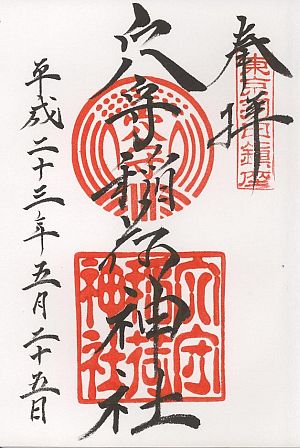 奉拝
東京羽田鎮座
穴守稲荷神社
穴守稲荷神社
平成二十三年五月二十五日